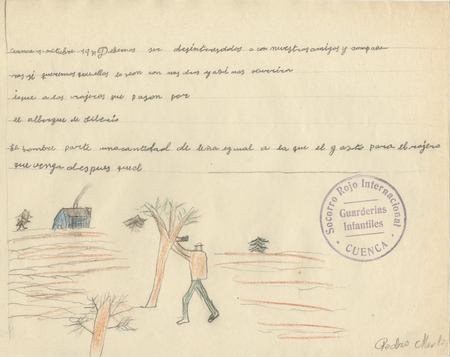 Cuenca 11 octubre 1937 Debemos ser desinteresados con nuestros amigos y compañe
ros si queremos que ellos lo sean con nos
igue a los viajeros que pasan por
el albergue de Siberia
El hombre parte una cantidad de leña igual a la que el gasto para el viajero
que venga despues que el
SOCORRO ROJO INTERNACIONAL
Guarderias
Infantiles
CUENCA
Pedro